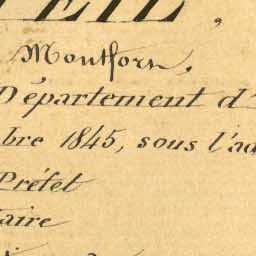 TEIL,
Montfort,
Département d'
bre 1845, sous l'ad
Préfet
aire